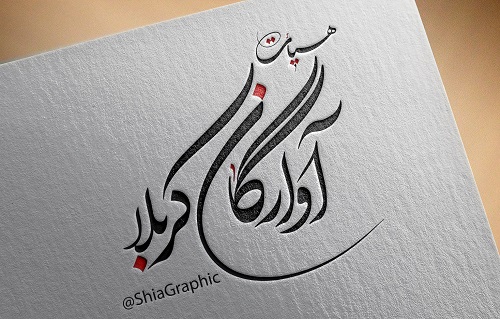 هیأت
آوارگان کربلا
@ShiaGraphic